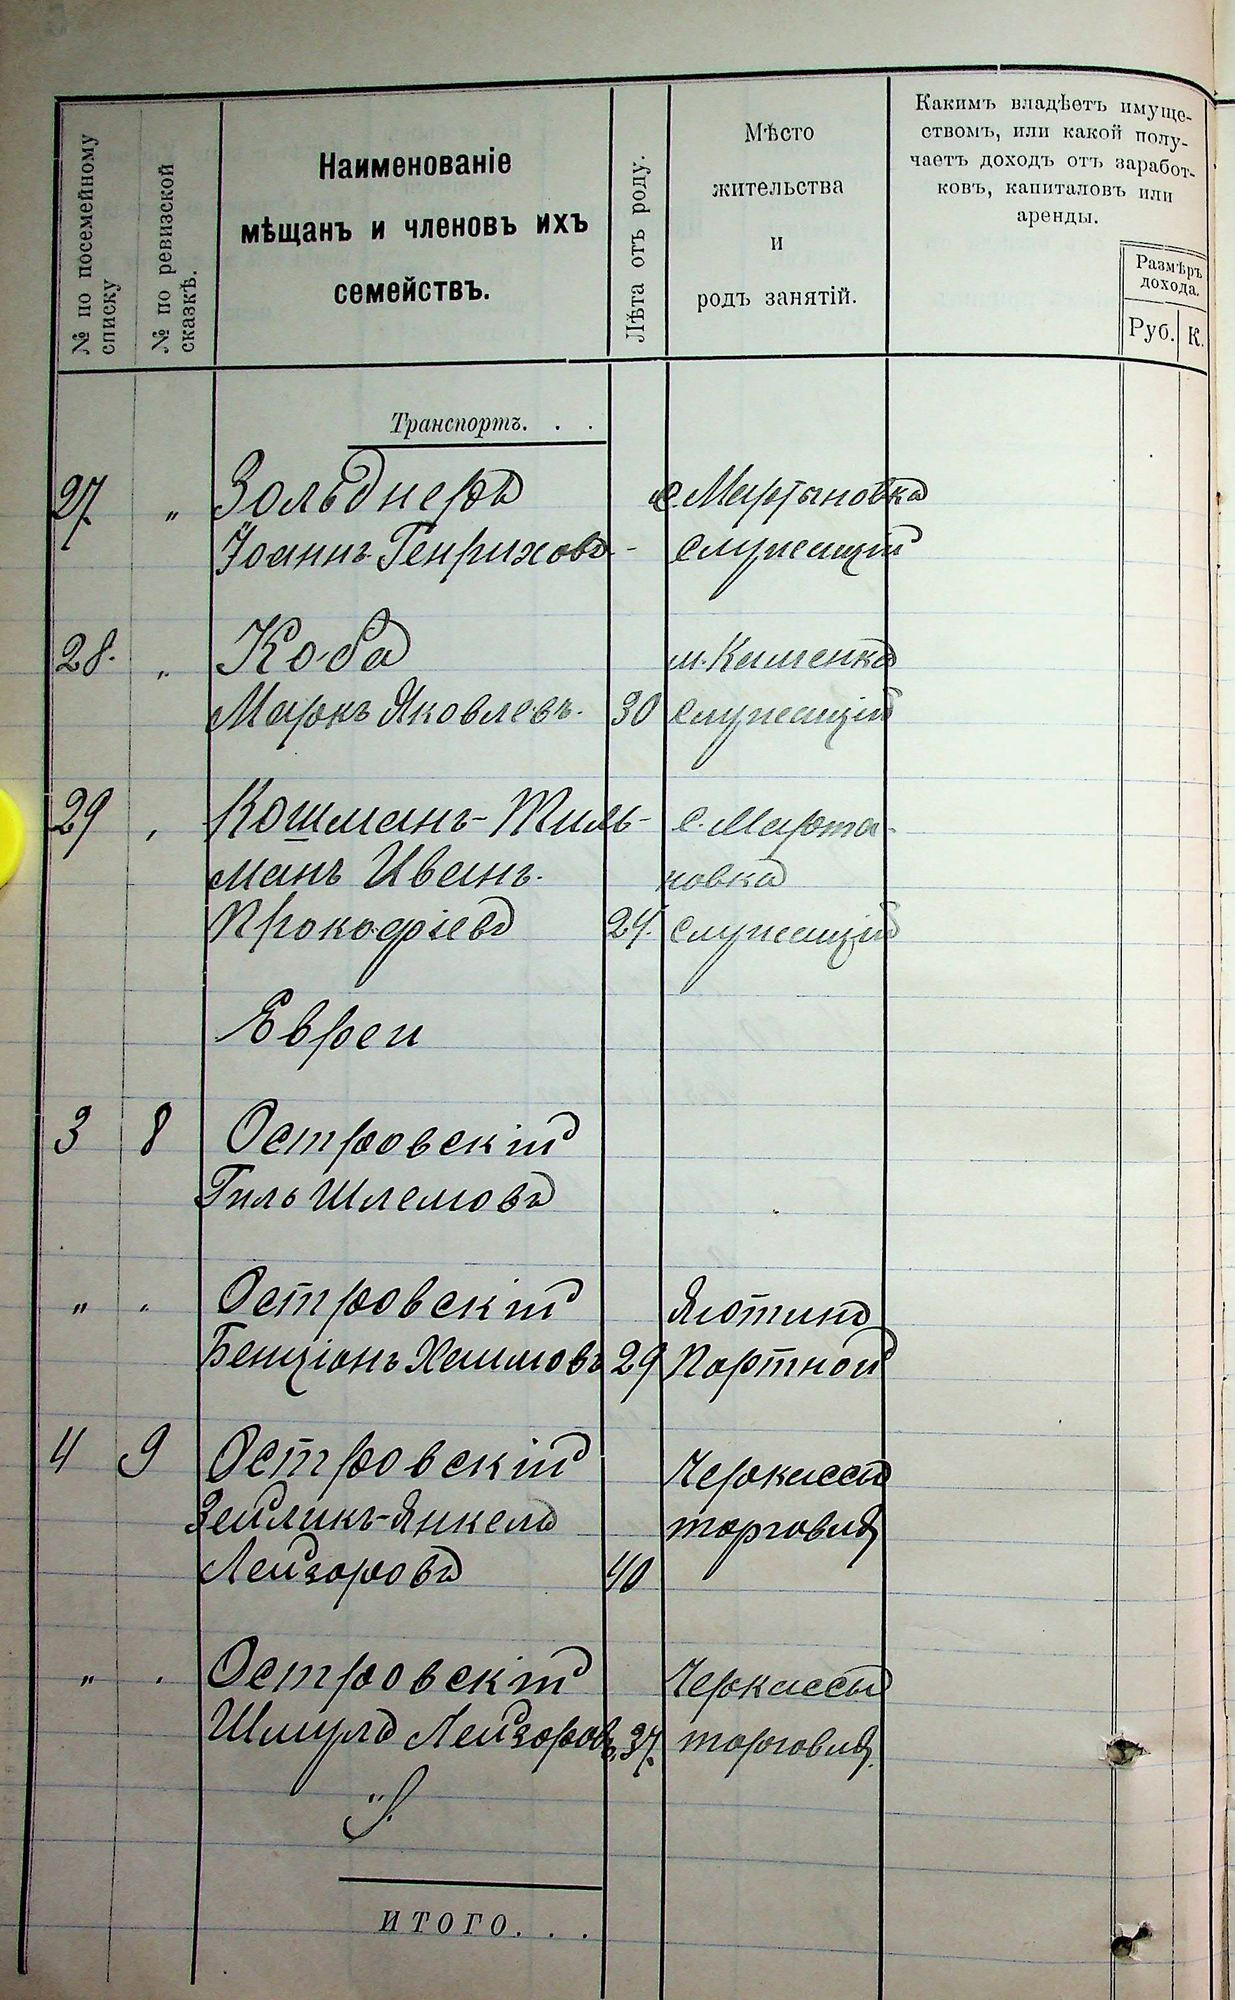 № по посемейному
списку
№ по ревизской
сказкѣ.
Наименованіе
мѣщанъ и членовъ ихъ
семействъ.
Лѣта отъ роду.
Мѣсто
жительства
и
родъ занятій.
Какимъ владѣетъ имуще-
ствомъ, или какой полу-
чаетъ доходъ отъ заработ-
ковъ, капиталовъ или
аренды.
Размѣръ
дохода.
Руб. К.
Транспортъ. . .
27. „ Зольднеръ с. Мартыновка
Іоаннъ Генриховъ - служащій
28. „ Коба м. Каменка
Маркъ Яковлевъ. 30 служащій
29 „ Кошманъ-Тиль- с. Марта-
манъ Иванъ новка
Прокофіевъ 24. служащій
Евреи
3 8 Островскій
Гиль Шлемовъ
„ „ Островскій Яготинъ
Бенціонъ Хаимовъ 29 Портной
4 9 Островскій Черкассы
Зейликъ-Янкель торговля
Лейзоровъ 40
„ „ Островскій Черкассы
Шмуль Лейзоровъ 37. торговля.
ИТОГО. . .